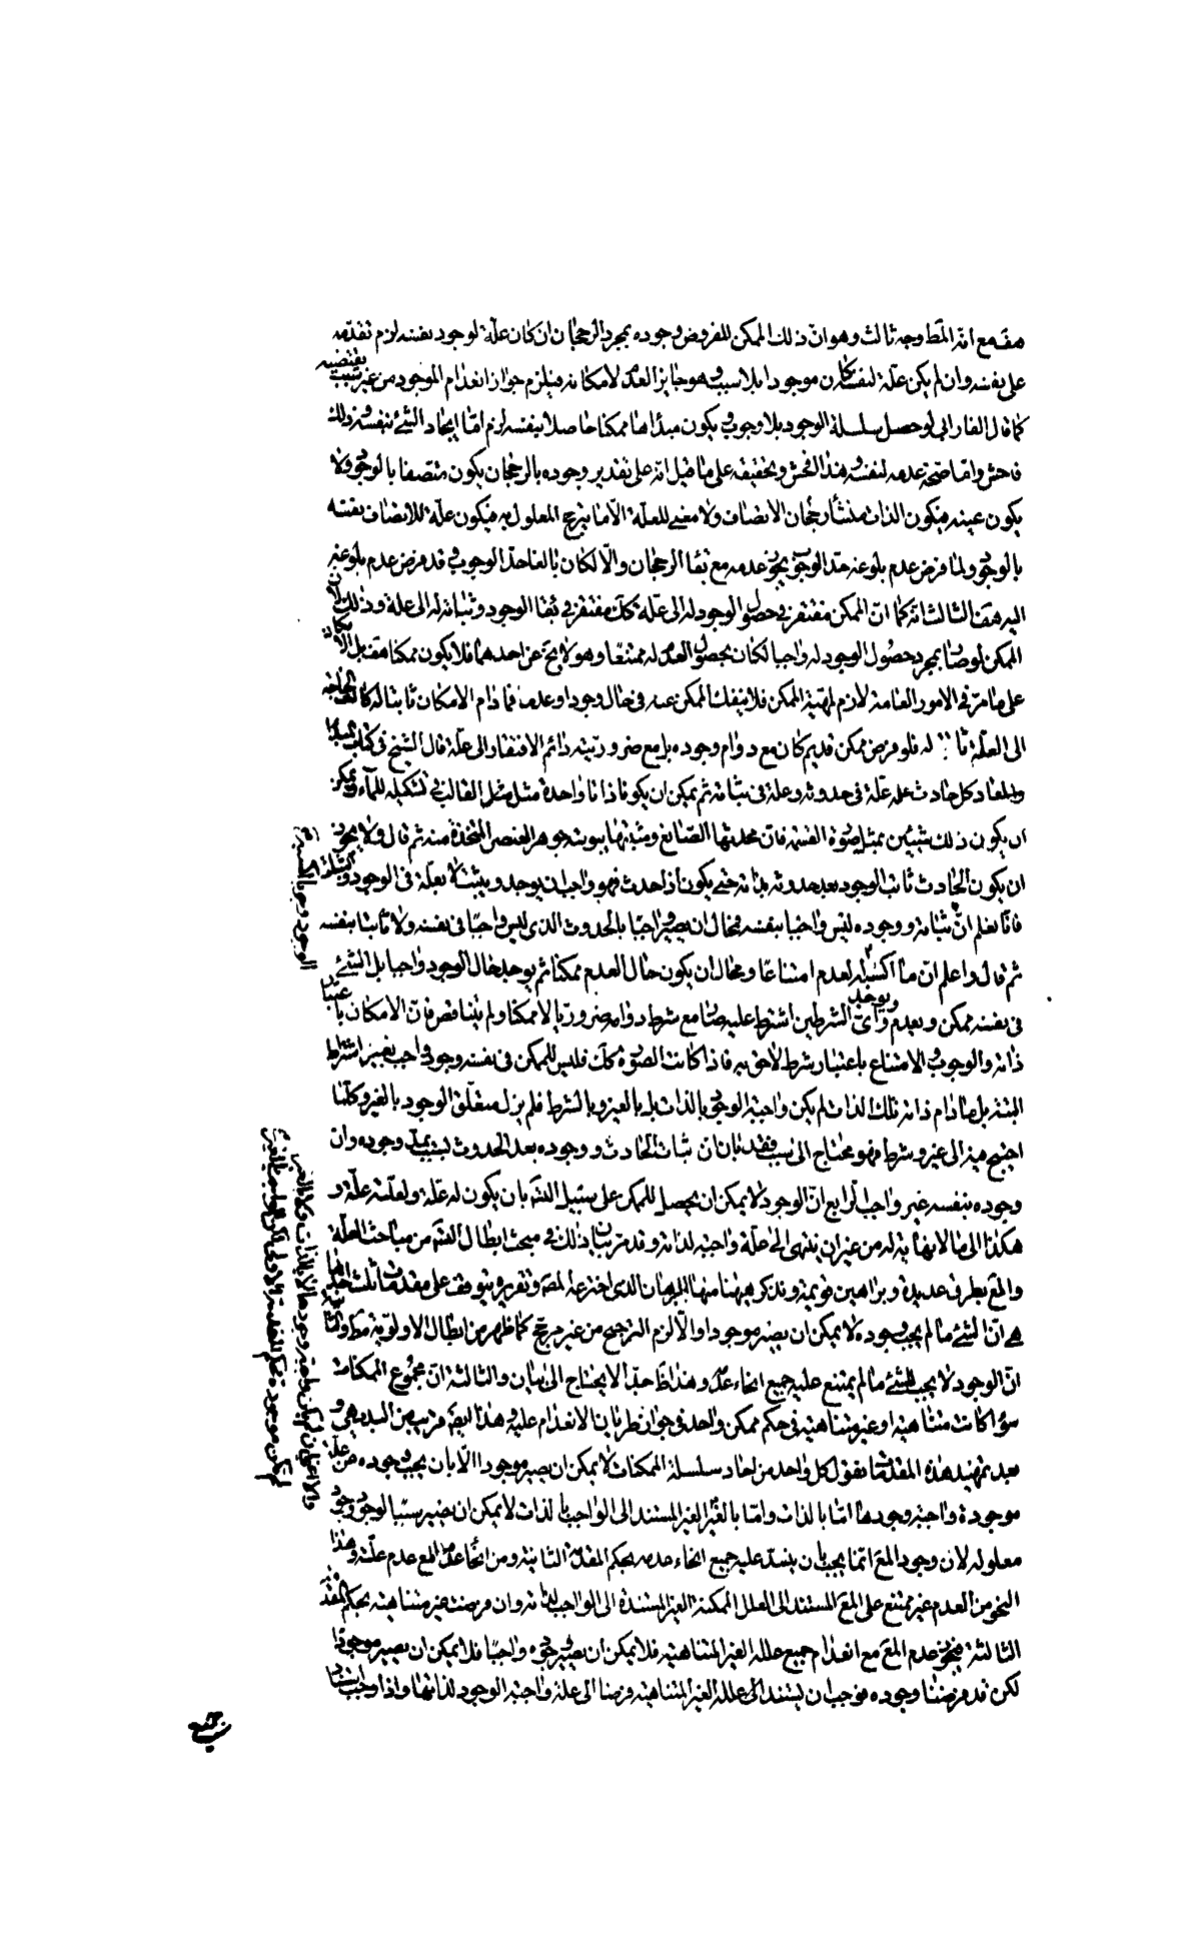 هف مع انه المط وجه ثالث وهو ان ذلك الممكن المفروض وجوده بمجرد الرجحان ان كان علة لوجود نفسه لزم تقدمه
على نفسه وان لم يكن علة لنفسه كان موجودا بلا سبب وهو جايز العدم لامكانه فيلزم جواز انعدام الموجود من غير سبب يقتضيه
كما قال الفارابي لو حصل سلسلة الوجود بلا وجوب ويكون مبدأها ممكنا حاصلا بنفسه لزم اما ايجاد الشئ نفسه وذلك
فاحش واما صحة عدمه لنفسه وهذا افحش وتحقيقه على ما قيل انه على تقدير وجوده بالرجحان يكون متصفا بالوجود ولا
يكون عينه فيكون الذات منشأ رجحان الاتصاف ولا معنى للعلة الا ما يترجح المعلول به فيكون علة للاتصاف نفسه
بالوجود ولما فرض عدم بلوغه حد الوجوب يجوز عدمه مع بقا الرجحان والا لكان بالغا حد الوجوب وقد فرض عدم بلوغه
اليه هف الثالث انه كما ان الممكن مفتقر في حصول الوجود له الى علة كك مفتقر في بقا الوجود وثباته له الى علة وذلك لان
الممكن لو صار بمجرد حصول الوجود له واجبا لكان بحصول العدم له ممتنعا وهو لا يخ عن احدهما فلا يكون ممكنا هف بل الامكان
على ما مر في الامور العامة لازم لمهية الممكن فلا ينفك الممكن عنه في حال وجود او عدم فما دام الامكان ثابتا له كانت الحاجة
الى العلة ثابتة له فلو فرض ممكن قديم كان مع دوام وجوده بل مع ضرورتيته دائم الافتقار الى علة قال الشيخ في كتاب المبدأ
والمعاد كل حادث علة في حدوثه وعلة في ثباته ثم يمكن ان يكونا ذاتا واحدة مثل القالب في تشكيله للماء ويمكن
ان يكون ذلك شيئين بمثل صورة الصنمية فان محدثها الصانع ومثبتها يبوسة جوهر العنصر المتخذة منه ثم قال ولا يجوز
ان يكون الحادث ثابت الوجود بعد حدوثه بذاته حتى يكون اذا حدث فهو واجب ان يوجد ويثبت لا بعلة في الوجود والثبات
فانا نعلم ان ثباته ووجوده ليس واجبا بنفسه فمحال ان يصير واجبا بالحدوث الذي ليس واجبا في نفسه ولا ثابتا بنفسه
ثم قال واعلم ان ما اكسبه العدم امتناعا ومحال ان يكون حال العدم ممكنا ثم يوجد حال الوجود واجبا بل الشئ
في نفسه ممكن ويعدم ويوجد واى الشرطين اشترط عليه صار مع شرط دوامه ضروريا لا ممكنا ولم يتناقض فان الامكان باعتبار
ذاته والوجوب والامتناع باعتبار شرط لاحق به فاذا كانت الصورة كك فليس للممكن في نفسه وجود واجب بغير اشتراط
البتة بل ما دام ذاته تلك الذات لم يكن واجبة الوجود بالذات بل بالغير وبالشرط فلم يزل متعلق الوجود بالغير وكلما
احتيج فيه الى غير وشرط فهو محتاج الى سبب فقد بان ان ثبات الحادث ووجوده بعد الحدوث بسبب يمد وجوده وان
وجوده بنفسه غير واجب الرابع ان الوجود لا يمكن ان يحصل للممكن على سبيل التسلسل بان يكون له علة ولعلته علة و
هكذا الى ما لا نهاية له من غير ان ينتهى الى علة واجبة لذاته وقد مر بيان ذلك في مبحث ابطال التسلسل من مباحث العلة
والمع بطرق عديدة وبراهين قويمة ونذكر ههنا منها البرهان الذي اخترعه المصنف وتقريره يتوقف على مقدمات ثلث احدها
هي ان الشئ ما لم يجب وجوده لا يمكن ان يصير موجودا والا لزم الترجيح من غير مرجح كما ظهر من ابطال الاولوية مط والثانية
ان الوجود لا يجب للشئ ما لم يمتنع عليه جميع انحاء عدمه وهذا ظ جدا لا يحتاج الى بيان والثالثة ان مجموع الممكنات
سواء كانت متناهية او غير متناهية في حكم ممكن واحد في جواز طريان الانعدام عليه وهذا ايضا قريب من البديهي و
بعد تمهيد هذه المقدمات نقول كل واحد من احاد سلسلة الممكنات لا يمكن ان يصير موجودا الا بان يجب وجوده من علة
موجودة واجبة وجودها اما بالذات واما بالغير الغير المستند الى الواجب بالذات لا يمكن ان يصير سببا لوجوب وجود
معلوله لان وجود المع انما يجب بان ينسد عليه جميع انحاء عدمه بحكم المقدمة الثانية ومن انحاء عدم المع عدم علته وهذا
النحو من العدم غير ممتنع على المع المستند الى العلل الممكنة الغير المستندة الى الواجب لذاته وان فرضت غير متناهية بحكم المقدمة
الثالثة فيجوز عدم المع مع انعدام جميع علله الغير المتناهية فلا يمكن ان يصير وجوده واجبا فلا يمكن ان يصير موجودا
لكن قد فرضنا وجوده فوجب ان يستند الى علله الغير المتناهية فرضا الى علة واجبة الوجود لذاتها واذا وجب استناد